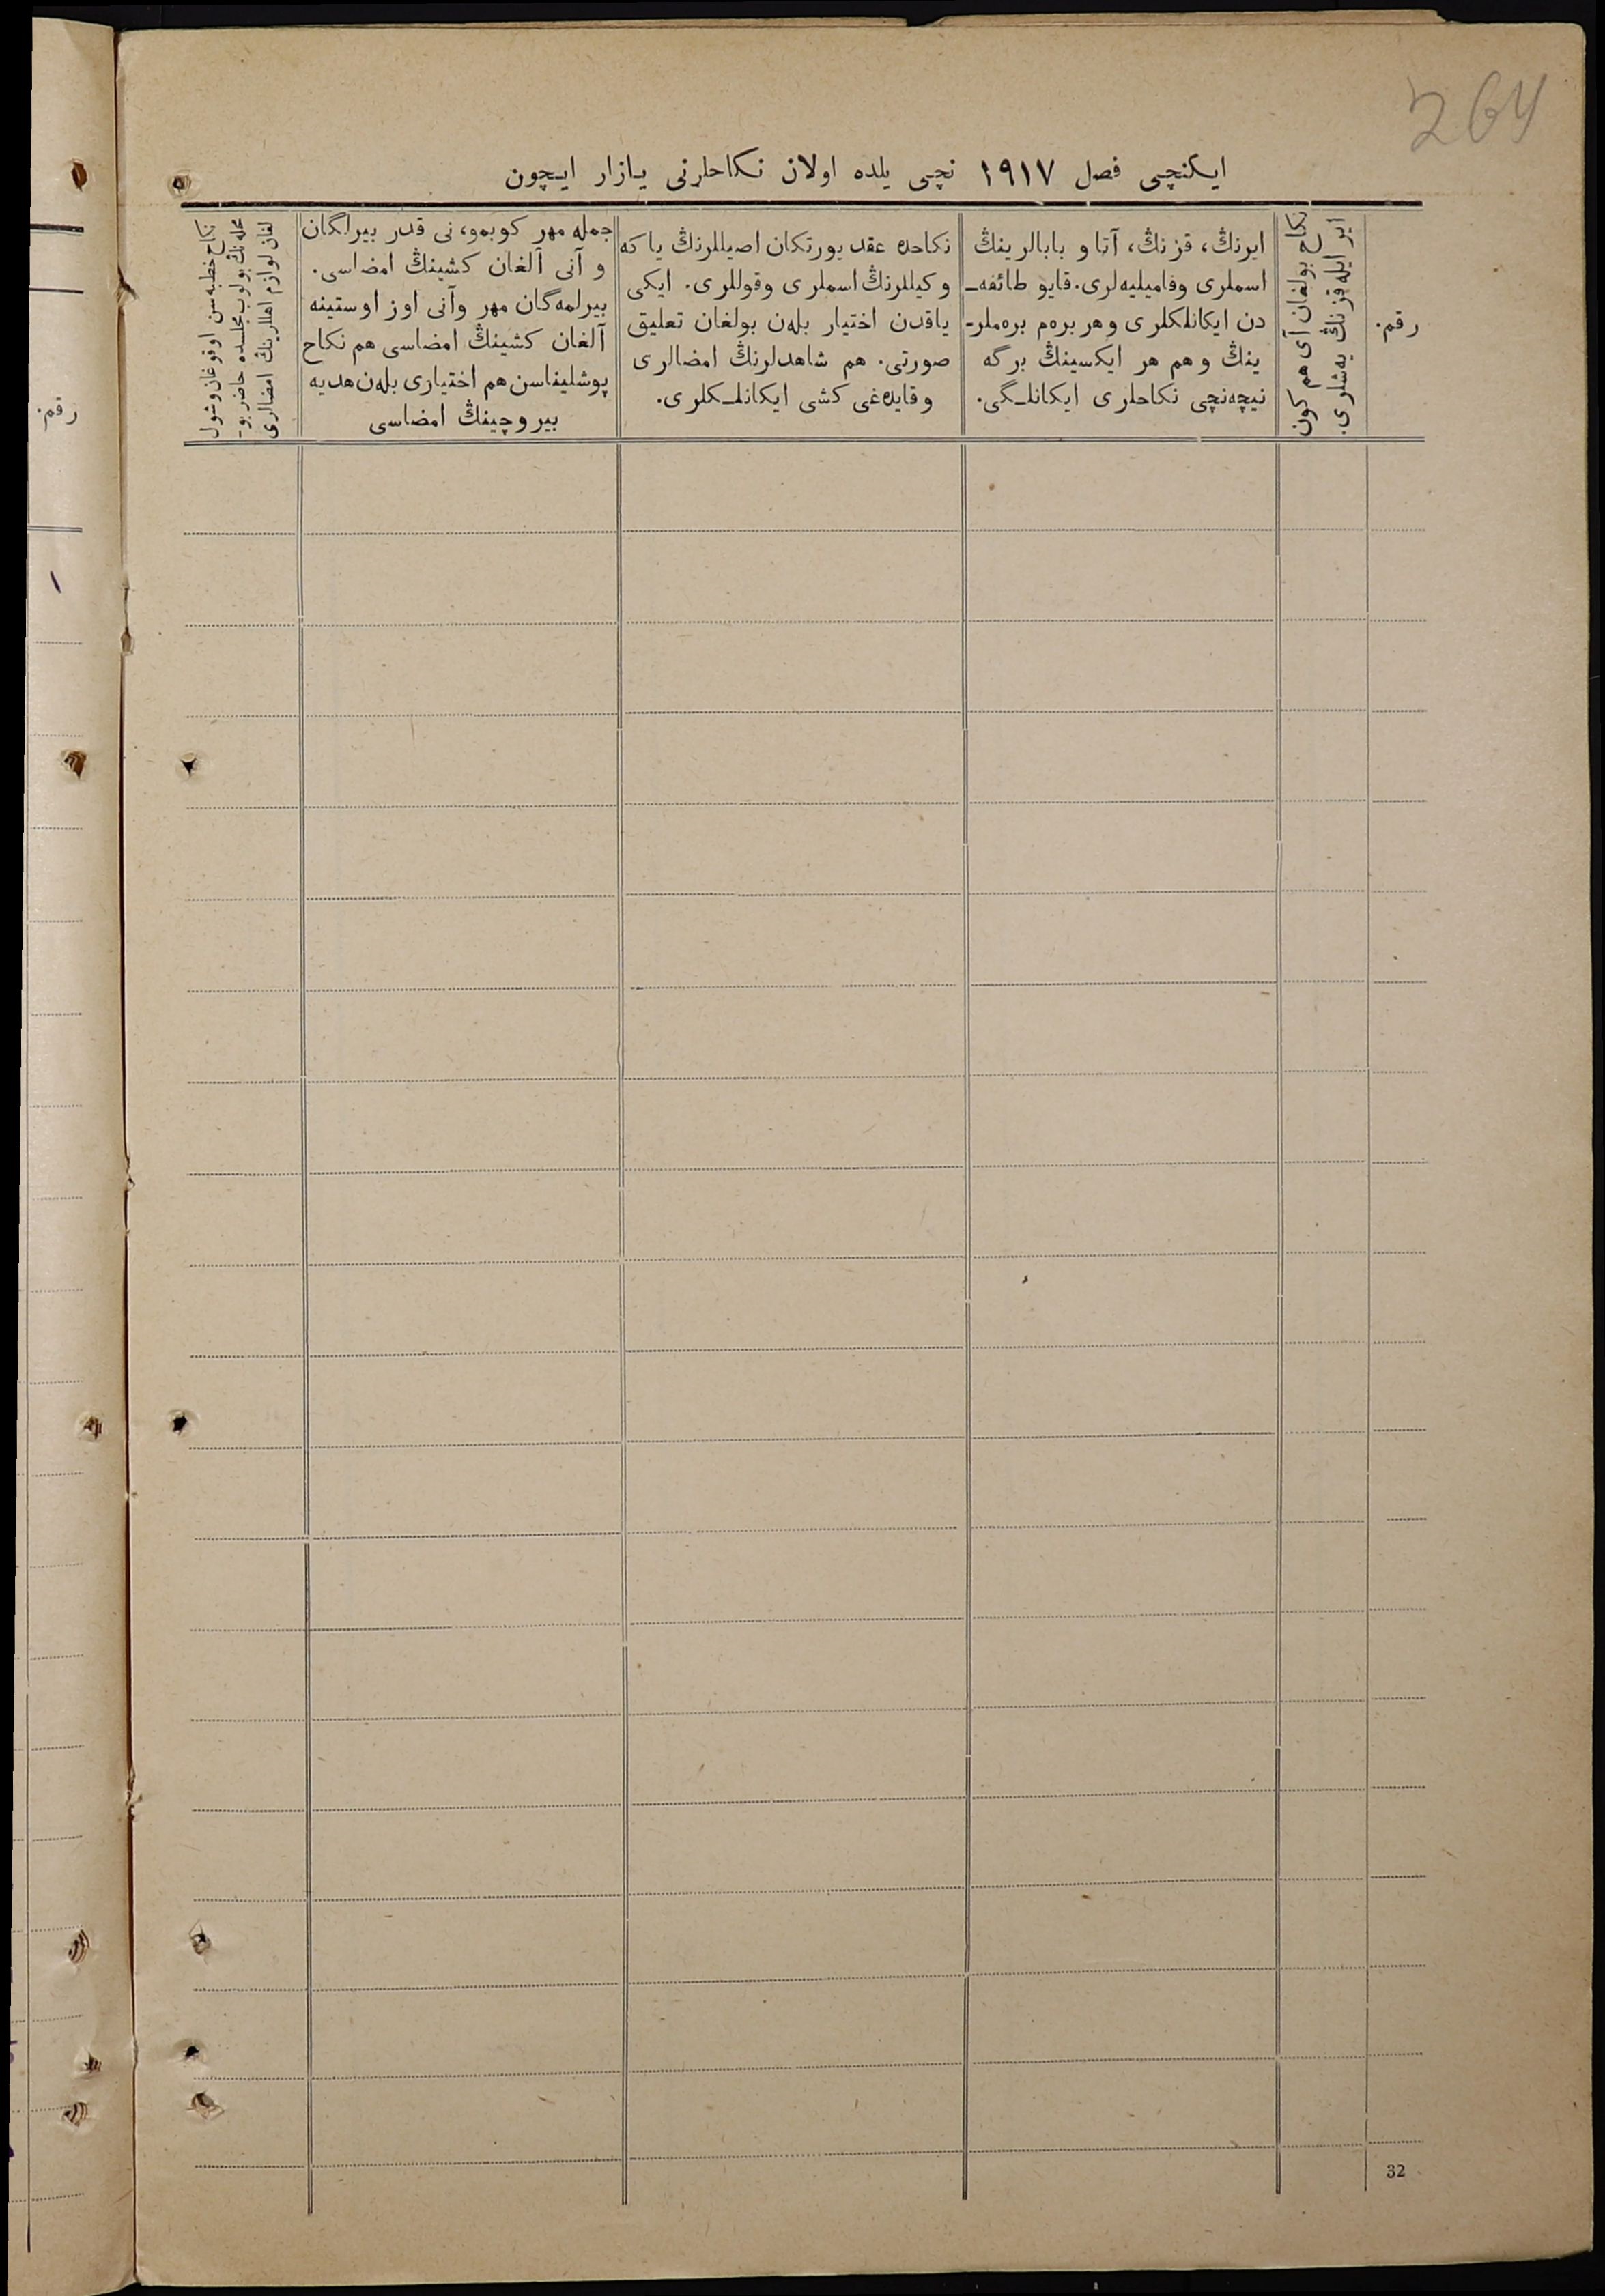 264
ایکنچی فصل ١٩١٧ نچی یلده اولان نکاحلرنی یازار ایچون
رقم.
نکاح بولغان آی هم کون
ایر ایله قزنڭ یه‌شلری.
ایرنڭ، قزنڭ، آتا و بابالرینڭ
اسملری وفامیلیه‌لری. قایو طائفه‌ـ
دن ایکانلکلری و هر بره‌م بره‌ملر-
ینڭ و هم هر ایکسینڭ برگه
نیچه‌نچی نکاحلری ایکانلـگی.
نکاحده عقد یورتکان اصیللرنڭ یا که
وکیللرنڭ اسملری وقوللری. ایکی
یاقدن اختیار بله‌ن بولغان تعلیق
صورتی. هم شاهدلرنڭ امضالری
وقایده‌غی کشی ایکانلـکلری.
جمله مهر کوبمو، نی قدر بیرلگان
و آنی آلغان کشینڭ امضاسی.
بیرلمه‌گان مهر وآنی اوز اوستینه
آلغان کشینڭ امضاسی هم نکاح
پوشلیناسن هم اختیاری بله‌ن هدیه
بیروچینڭ امضاسی
نکاح خطبه‌سن اوقوغان وشول
محله‌نڭ بولوب مجلسده حاضر بو-
لغان لوازم اهللرینڭ امضالری
رقم.
١
32